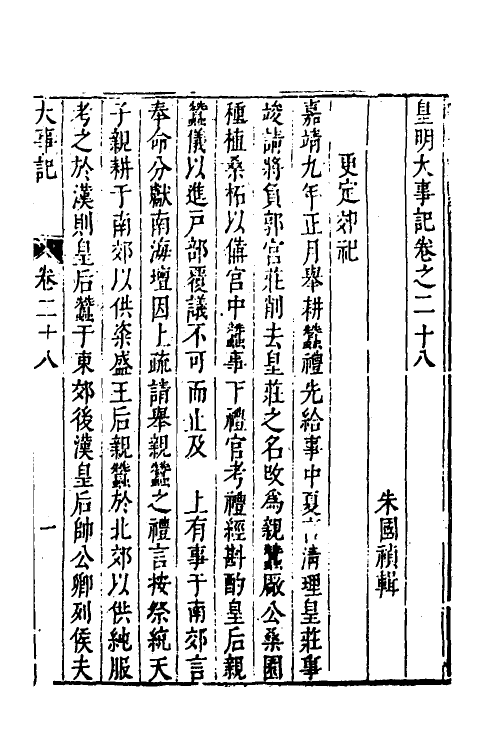 皇明大事記卷之二十八
朱國禎輯
更定郊祀
嘉靖九年正月舉耕蠶禮先給事中夏言清理皇莊事
竣請將負郭宮莊削去皇莊之名改為親蠶廠公桑園
種植桑柘以備宮中蠶事下禮官考禮經斟酌皇后親
蠶儀以進戶部覆議不可而止及　上有事于南郊言
奉命分獻南海壇因上疏請舉親蠶之禮言按祭統天
子親耕于南郊以供粢盛王后親蠶於北郊以供純服
考之於漢則皇后蠶于東郊後漢皇后帥公卿列侯夫
大事記　卷二十八　一